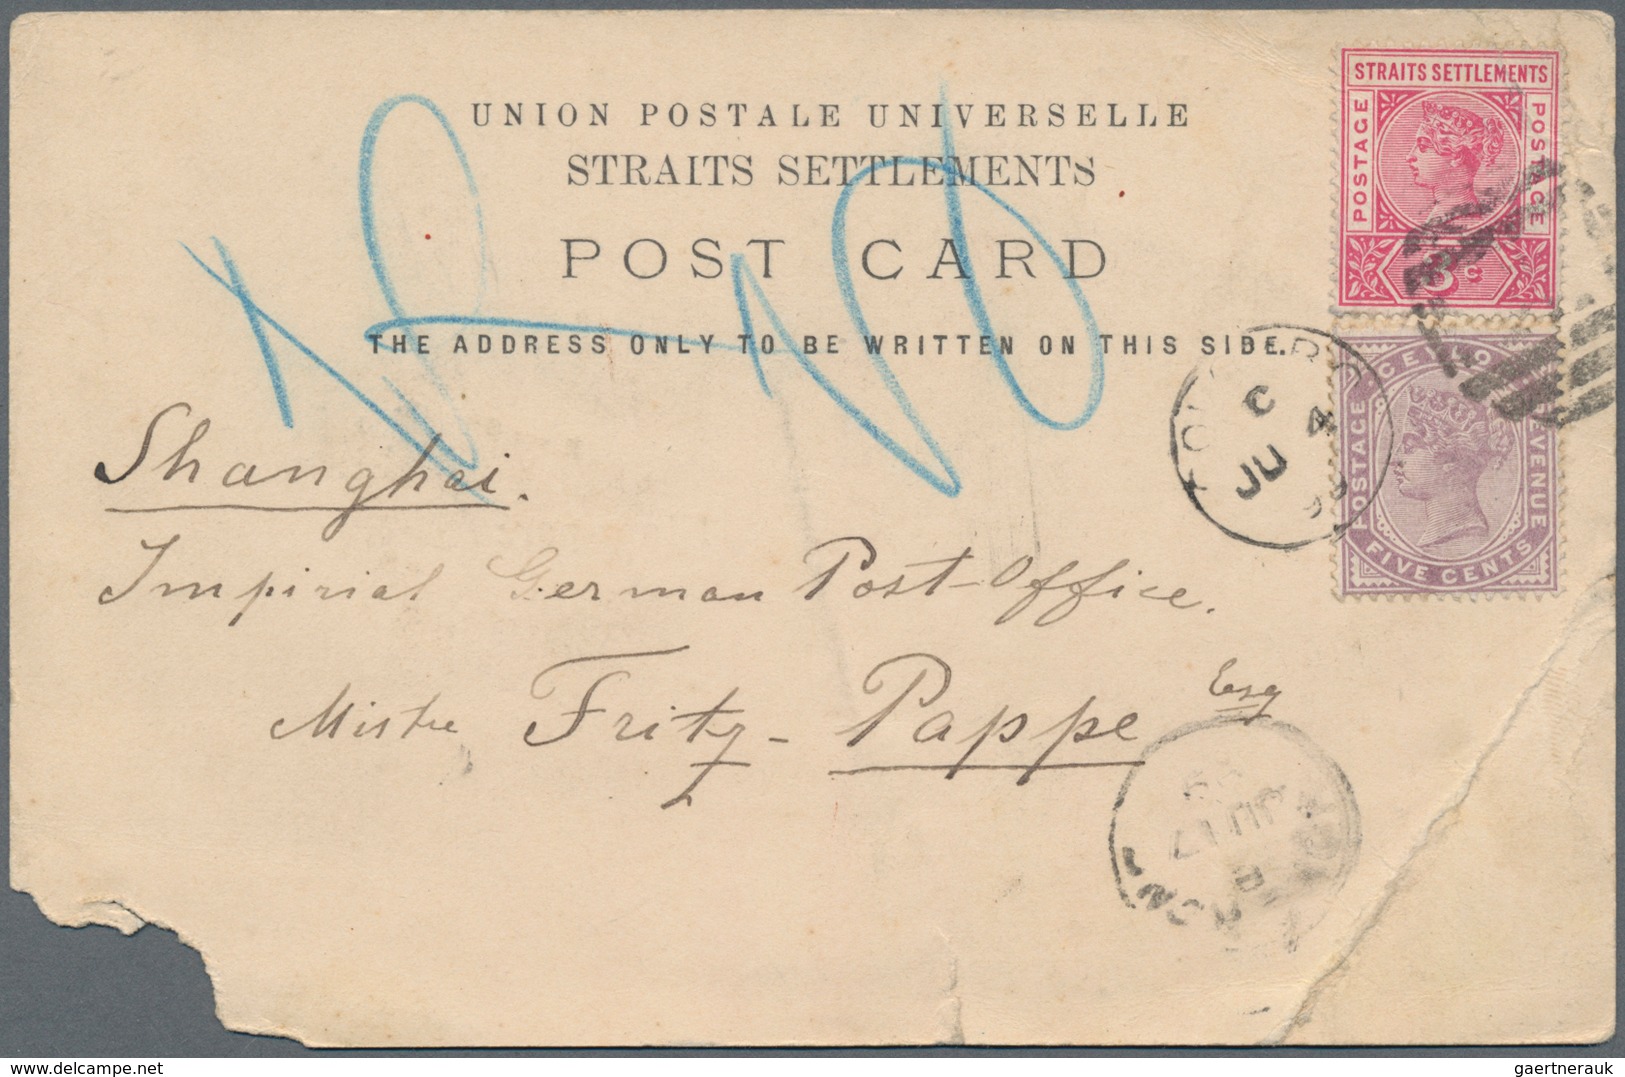 UNION POSTALE UNIVERSELLE
STRAITS SETTLEMENTS
POST CARD
THE ADDRESS ONLY TO BE WRITTEN ON THIS SIDE.
STRAITS SETTLEMENTS
POSTAGE
POSTAGE
3 C
POSTAGE
REVENUE
FIVE CENTS
C
JU 4
Shanghai.
Imperial German Post-Office.
Mistre Fritz - Pappe Esq
D
JU 17
99
gaertnerauk